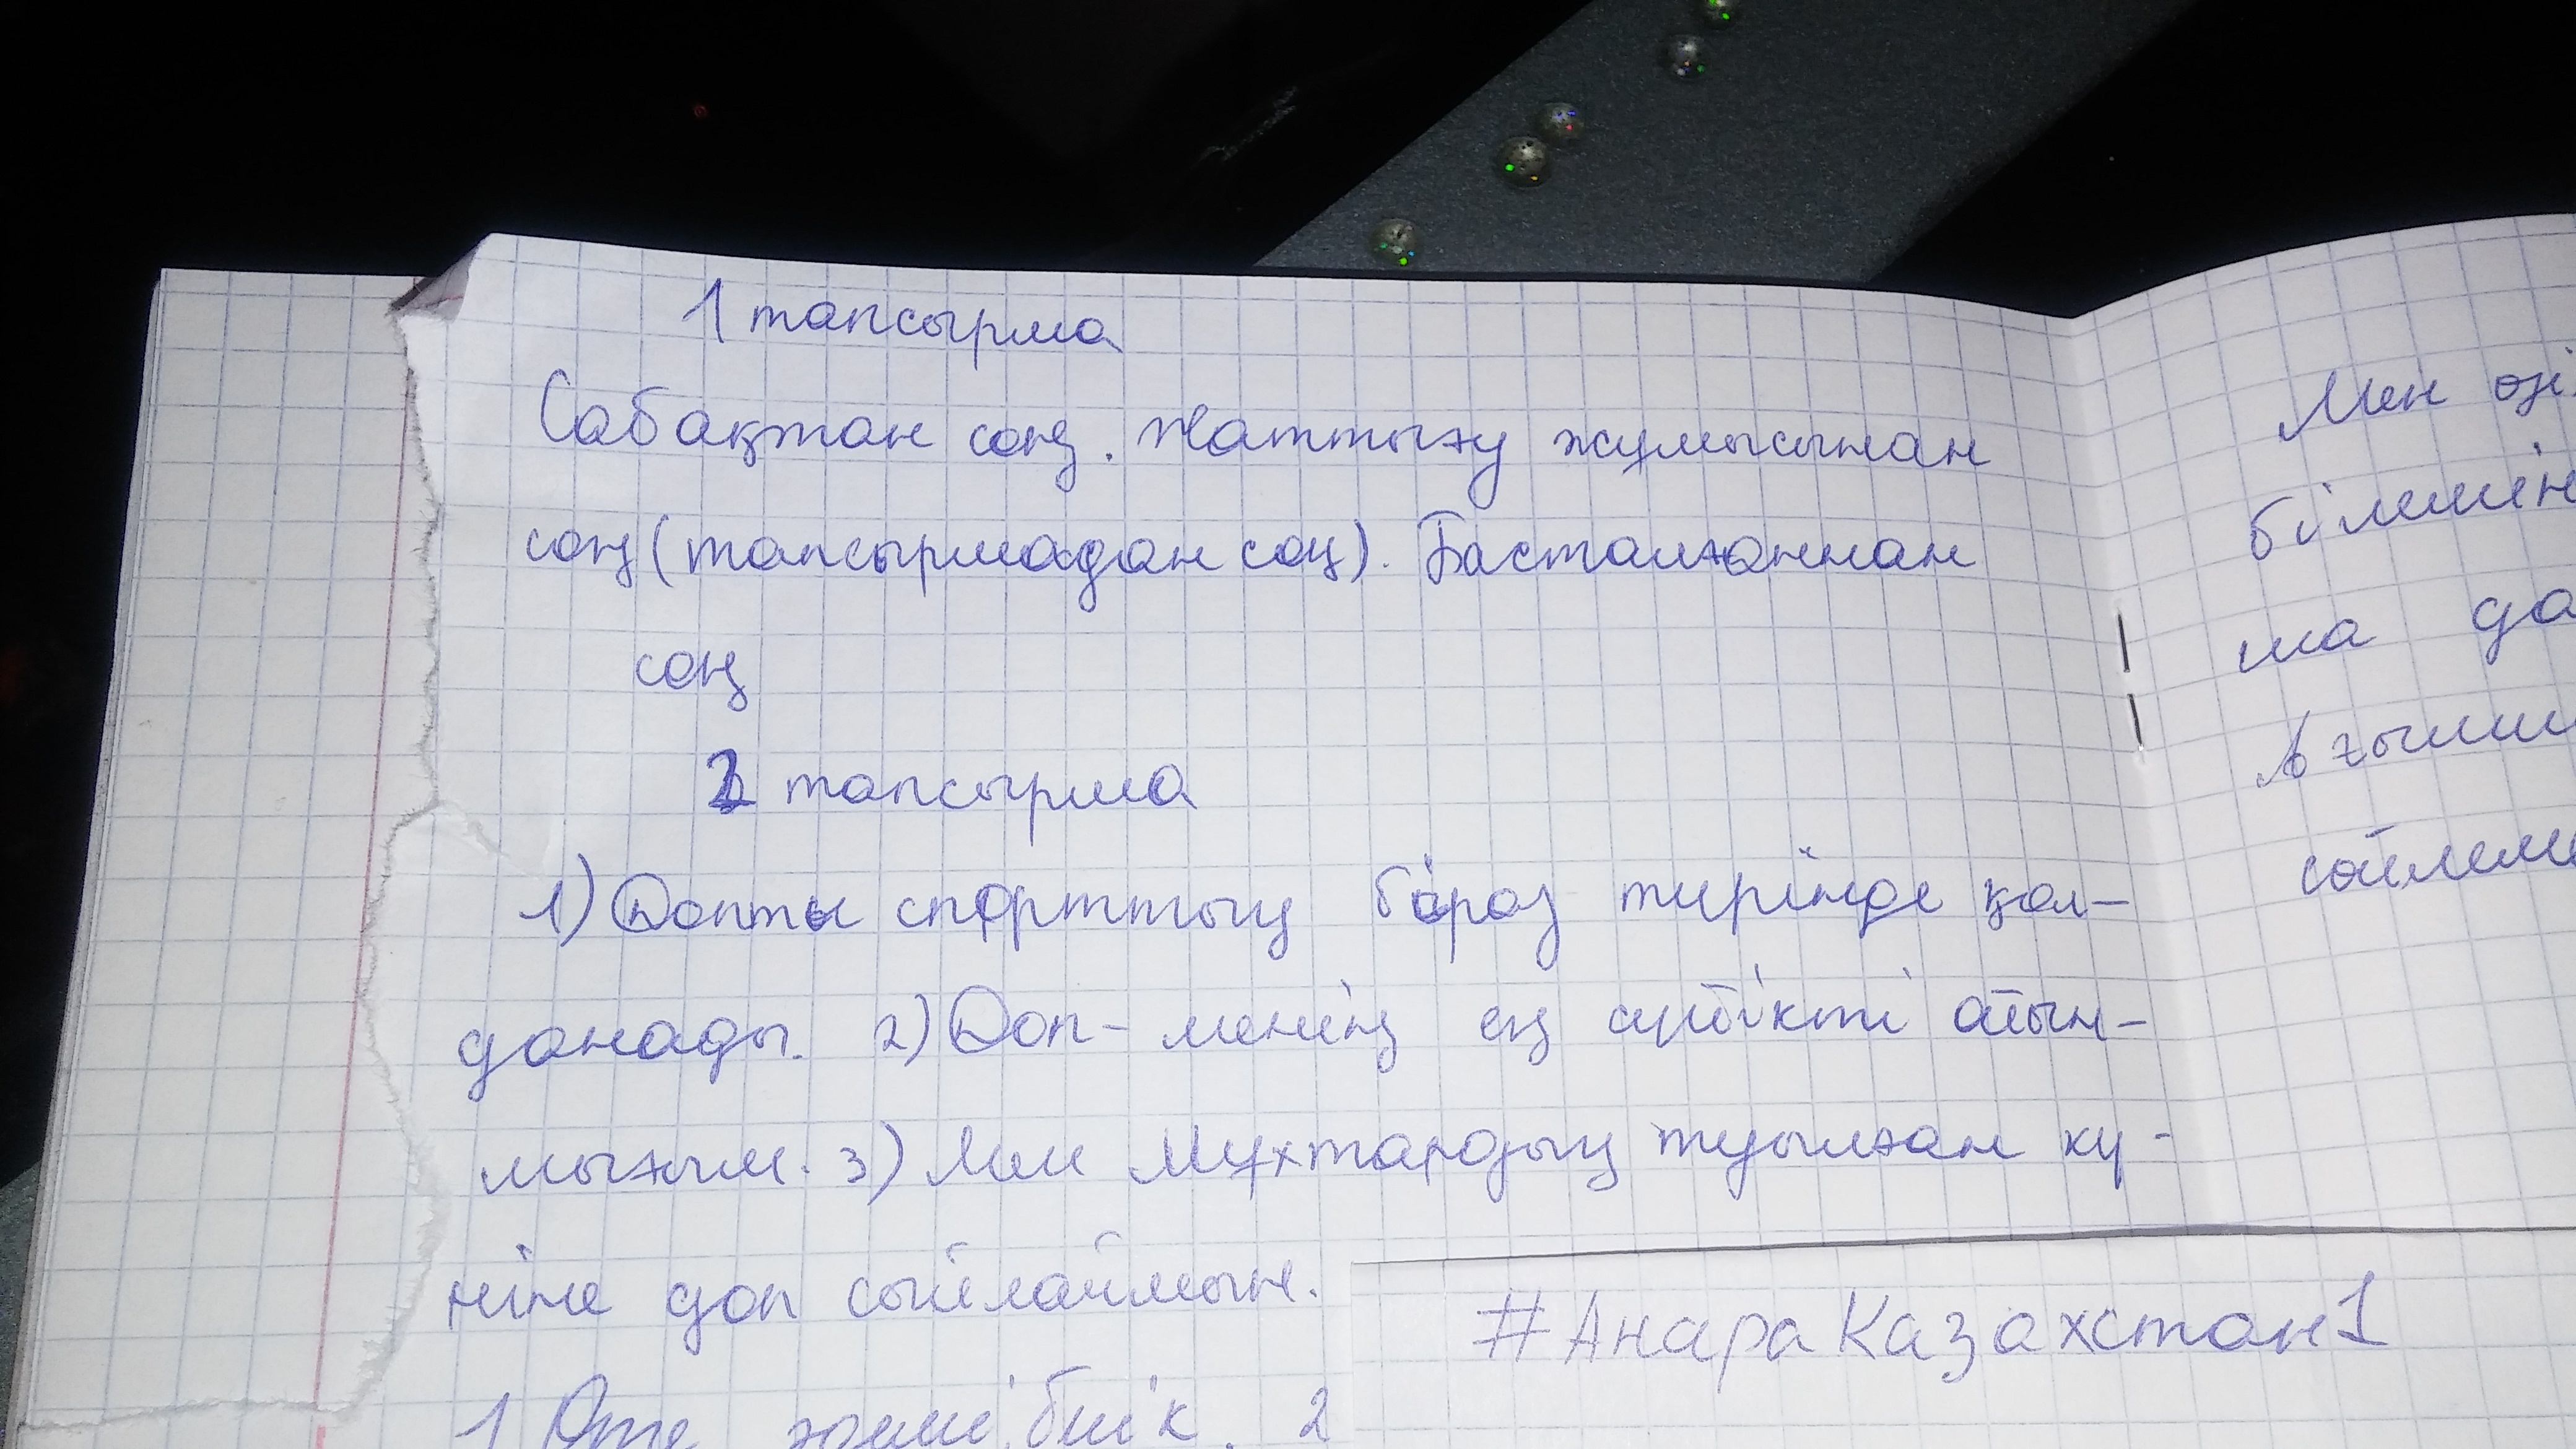 1 тапсырма
Сабақтан соң. Жаттығу жұмысынан
соң (тапсырмадан соң). Басталғаннан
соң
2 тапсырма
1) Допты спорттың біраз түрінде қол-
данады. 2) Доп - менің ең сүйікті ойын-
шығым. 3) Мен Мұхтардың туылған кү-
ніне доп сыйлаймын.
#АнараКазахстан1
1 Өте биік. 2
Мен
білемін
ша да
сөйлем